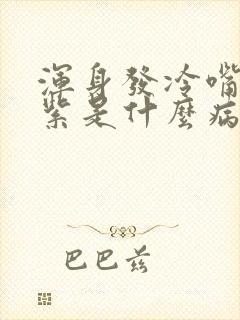 渾身發冷嘴
紫是什麼病
巴巴兹